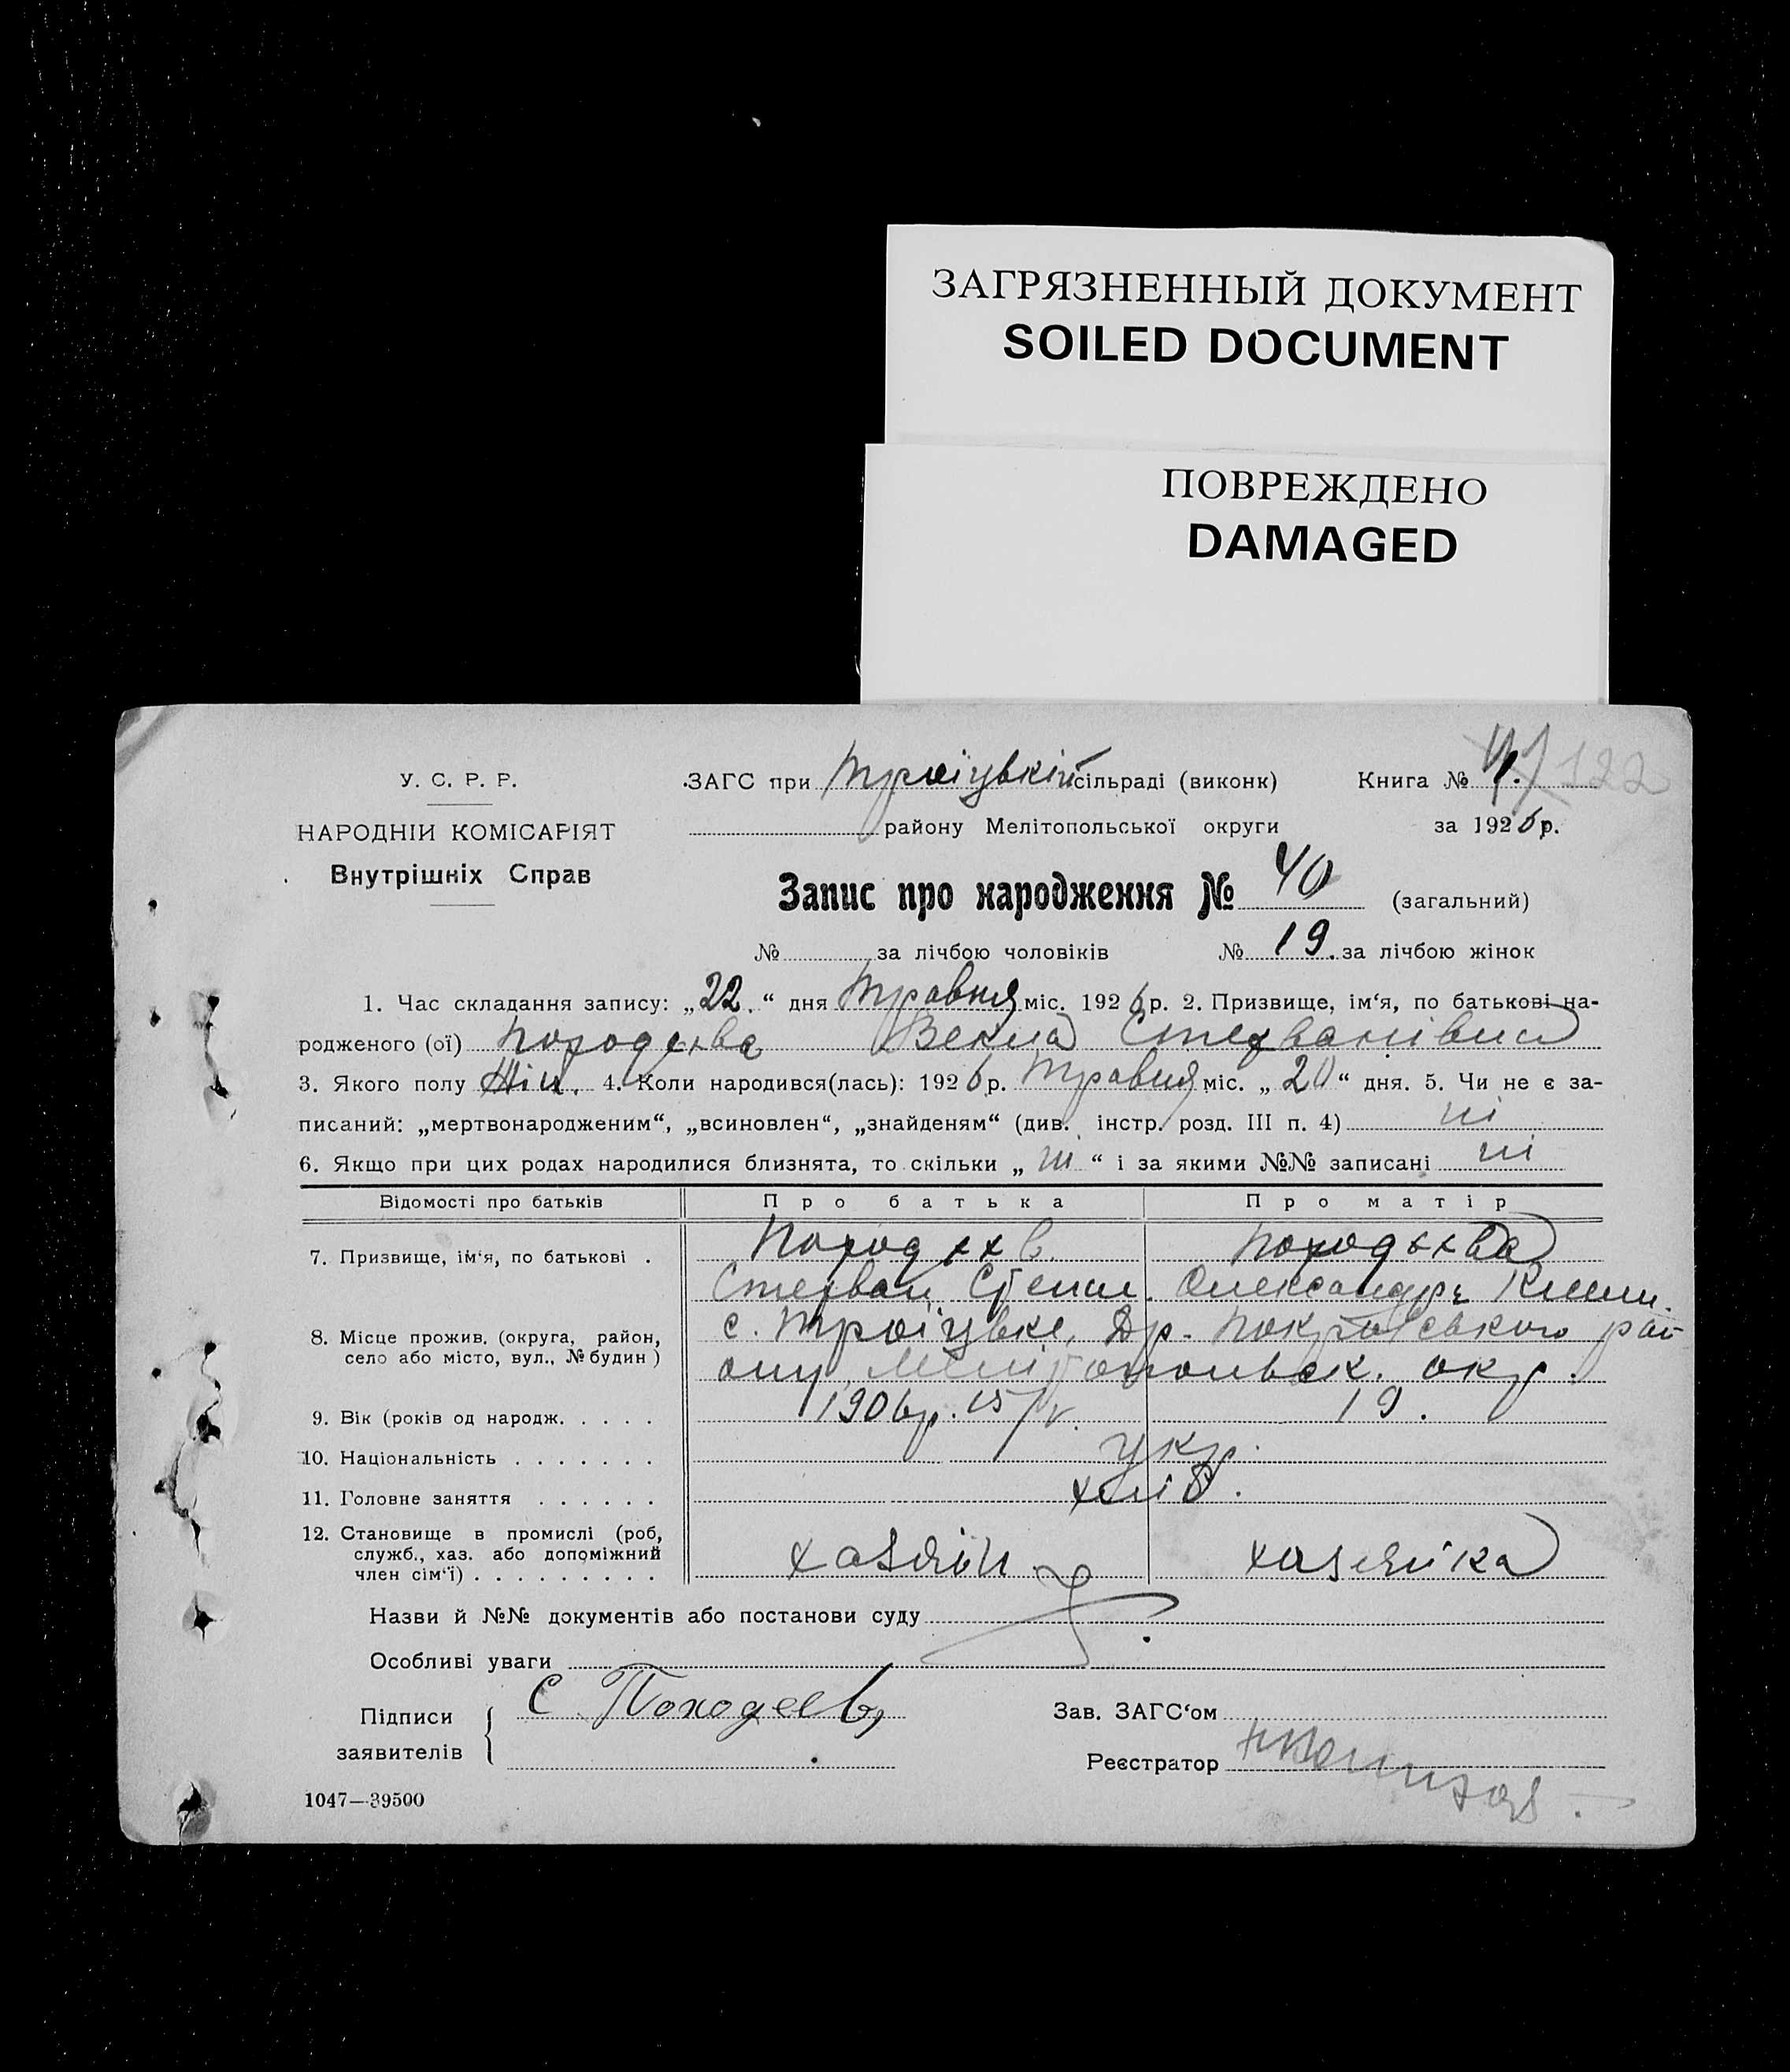 ЗАГРЯЗНЕННЫЙ ДОКУМЕНТ
SOILED DOCUMENT
ПОВРЕЖДЕНО
DAMAGED
У. С. Р. Р.
НАРОДНІЙ КОМІСАРІЯТ
Внутрішніх Справ
ЗАГС при Троїцькій сільраді (виконк)
району Мелітопольської округи
Книга № 122
за 1926 р.
Запис про народження № 40 (загальний)
№ за лічбою чоловіків № 19. за лічбою жінок
1. Час складання запису: „22.“ дня Травня міс. 1926 р. 2. Призвище, ім‘я, по батькові на-
родженого (ої) Векла Стефванівна
3. Якого полу Жін. 4. Коли народився(лась): 1926 р. Травня міс. „20“ дня. 5. Чи не є за-
писаний: „мертвонародженим“, „всиновлен“, „знайденям“ (див. інстр. розд. III п. 4) ні
6. Якщо при цих родах народилися близнята, то скільки „ні“ і за якими №№ записані ні
Відомості про батьків Про батька Про матір
7. Призвище, ім‘я, по батькові .
Стефван Степан. Олександра
8. Місце прожив. (округа, район,
село або місто, вул., № будин)
с. Троїцьке, Др. Покровського рай
ону Мелітопольск. окр.
9. Вік (років од народж. . . . . 1906р. 19.
10. Національність . . . . . . . укр.
11. Головне заняття . . . . . . хліб.
12. Становище в промислі (роб,
служб., хаз. або допоміжний
член сім‘ї) . . . . . . . . . хазяїн хазяйка
Назви й №№ документів або постанови суду
Особливі уваги
Підписи
заявителів
С Походеев
Зав. ЗАГС‘ом
Реєстратор
1047—39500